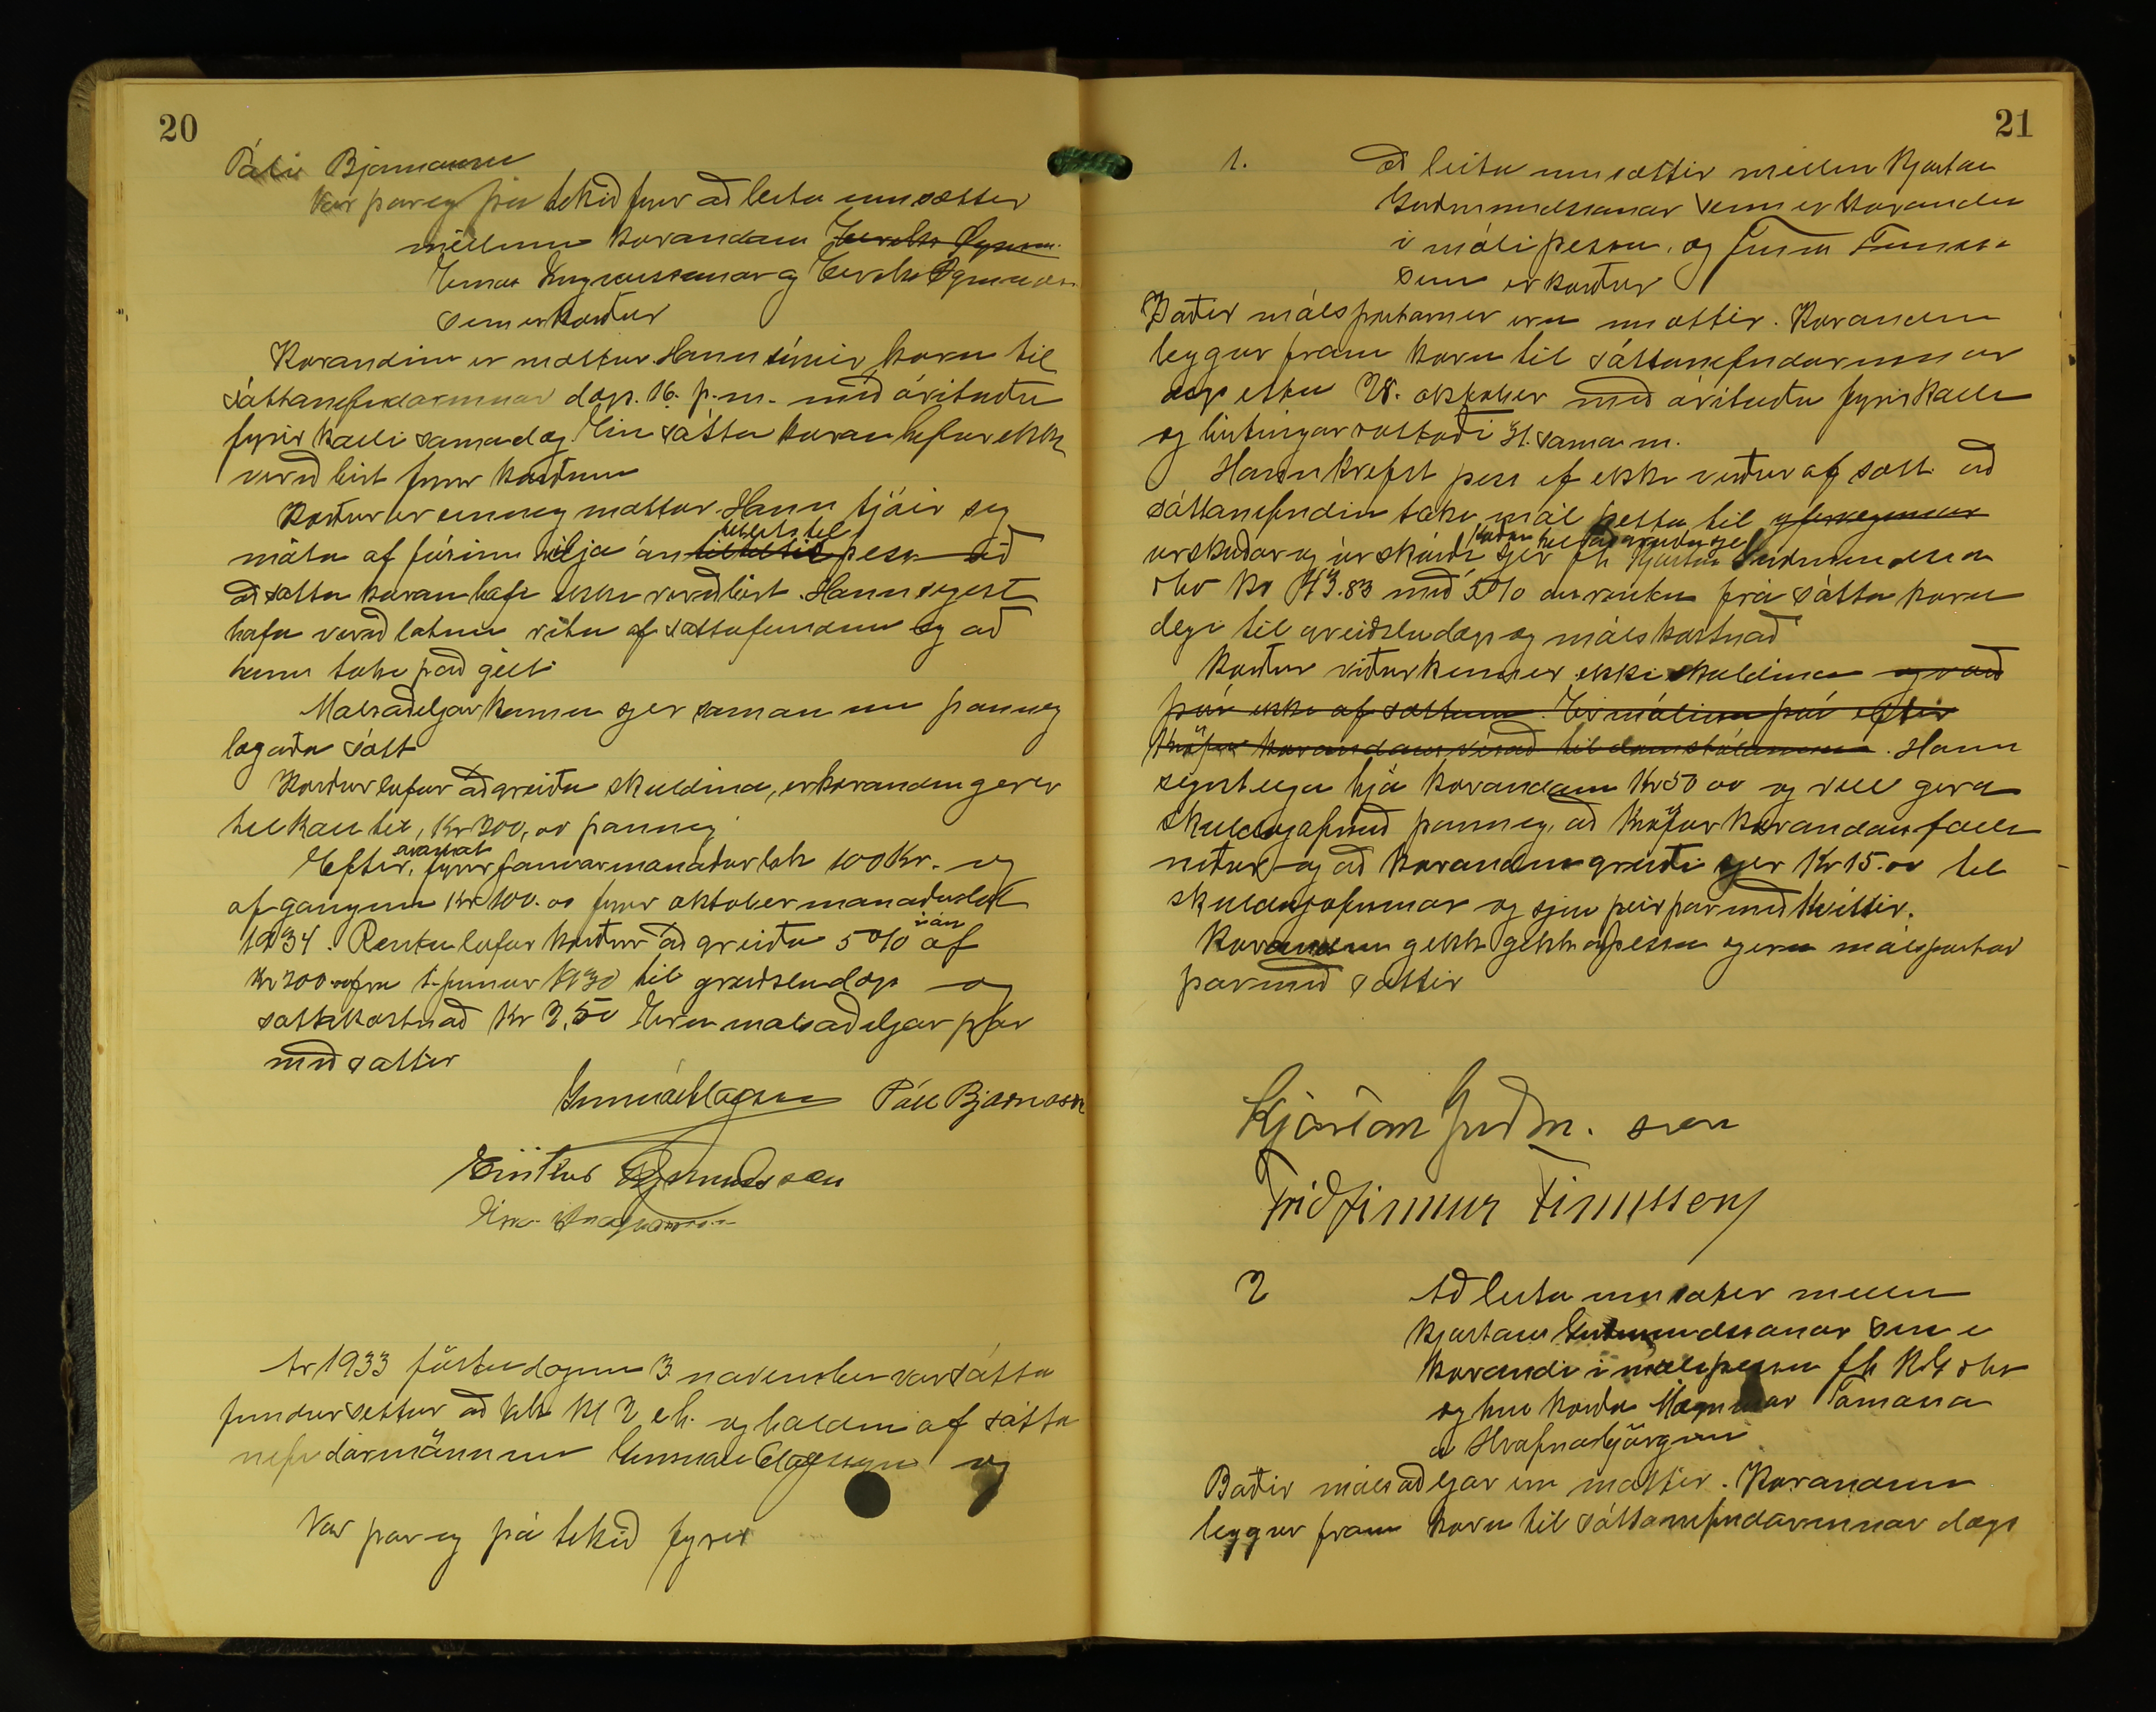 20
Páli Bjarnasyni
Var þar og þá tekið fyrir að leita um sættir
millum kærandans
Einars og Eiríks Ögmundss.
sem er kærður
Kærandinn er mættur. Hann sýnir kæru til
sáttanefndarinnar dags. 16. þ.m. með árituðu
fyrir kalli samadag. En sátta kæran hefur ekki
verið birt fyrir kærðum
Kærður er einneg mættur. Hann tjáir sig
mæta af fúsum vilja án tillits til þess að
að sátta kæran hafi ekki verið birt. Hann segist
hafa verið látinn vita af sáttafundinum og að
hann taki það gilt.
Málsaðiljar koma sjer saman um þanneg
lagaða sátt
Kærður lofar að greiða skuldina, er kærandinn gerir
tilkall til, Kr 200,00 þanneg
fyrir janúarmánaðarlok 100 Kr. og
afganginn Kr 100.00 fyrir oktober mánaðarlok
1934. Rentu lofar kærður að greiða 5% af
Kr 200.00 frá 1. janúar 1930 til greiðsludags og
sáttakostnað Kr 2,50 Eru málsaðiljar þar
með sáttir
Páll Bjarnason
Eiríkur Ögmundsson
Ár 1933 föstudaginn 3 november var sátta
fundur settur að Kl 2 e.h. og haldinn af sátta
nefndarmönnum og
Var þar og þá tekið fyrir
21
1. Að leita um sættir millum Kjartan
Guðmundssonar sem er kærandi
í máli þessu, og Finns
sem er kærður
Báðir málspartarnir eru mættir. Kærandinn
leggur fram kæru til sáttanefndarinnar
dagsetta 28. oktober með árituðu fyrirkalli
og birtingarvottorði 31. sama m.
Hann krefst þess ef ekki verður af sátt að
sáttanefndin taki mál þetta til
úrskurðar og úrskurði kærðan til að greiða sjer fh Kjartan Guðmundsson
Kr 43.83 með 5% ársrentu frá sátta kæru
degi til greiðsludags og málskostnað
Kærður viðurkennir ekki skuldina og varð
þar ekki af sáttum. Er málinu þá eftir
kröfu kærandans vísað til dómstólanna. Hann
segist eiga hjá kærandanum Kr 50 00 og vill gera
skuldajöfnuð þanneg, að kröfur kærandans falli
niður og að kærandinn greiði sjer Kr 15.00 til
skuldajöfnunar og sjeu þeir þar með kvittir.
Kærandinn gekk gekk að þessu og eru málspartar
þar með sáttir
Kjartan Guðm. son
Friðfinnur Finnsson
2 Að leita um sættir millum
Kjartans Guðmundssonar sem er
kærandi í máli þessu fh
og hins kærða Tómasar
á Hrafnabjörgum
Báðir málsaðiljar eru mættir. Kærandinn
leggur fram kæru til sáttanefndarinnar dags